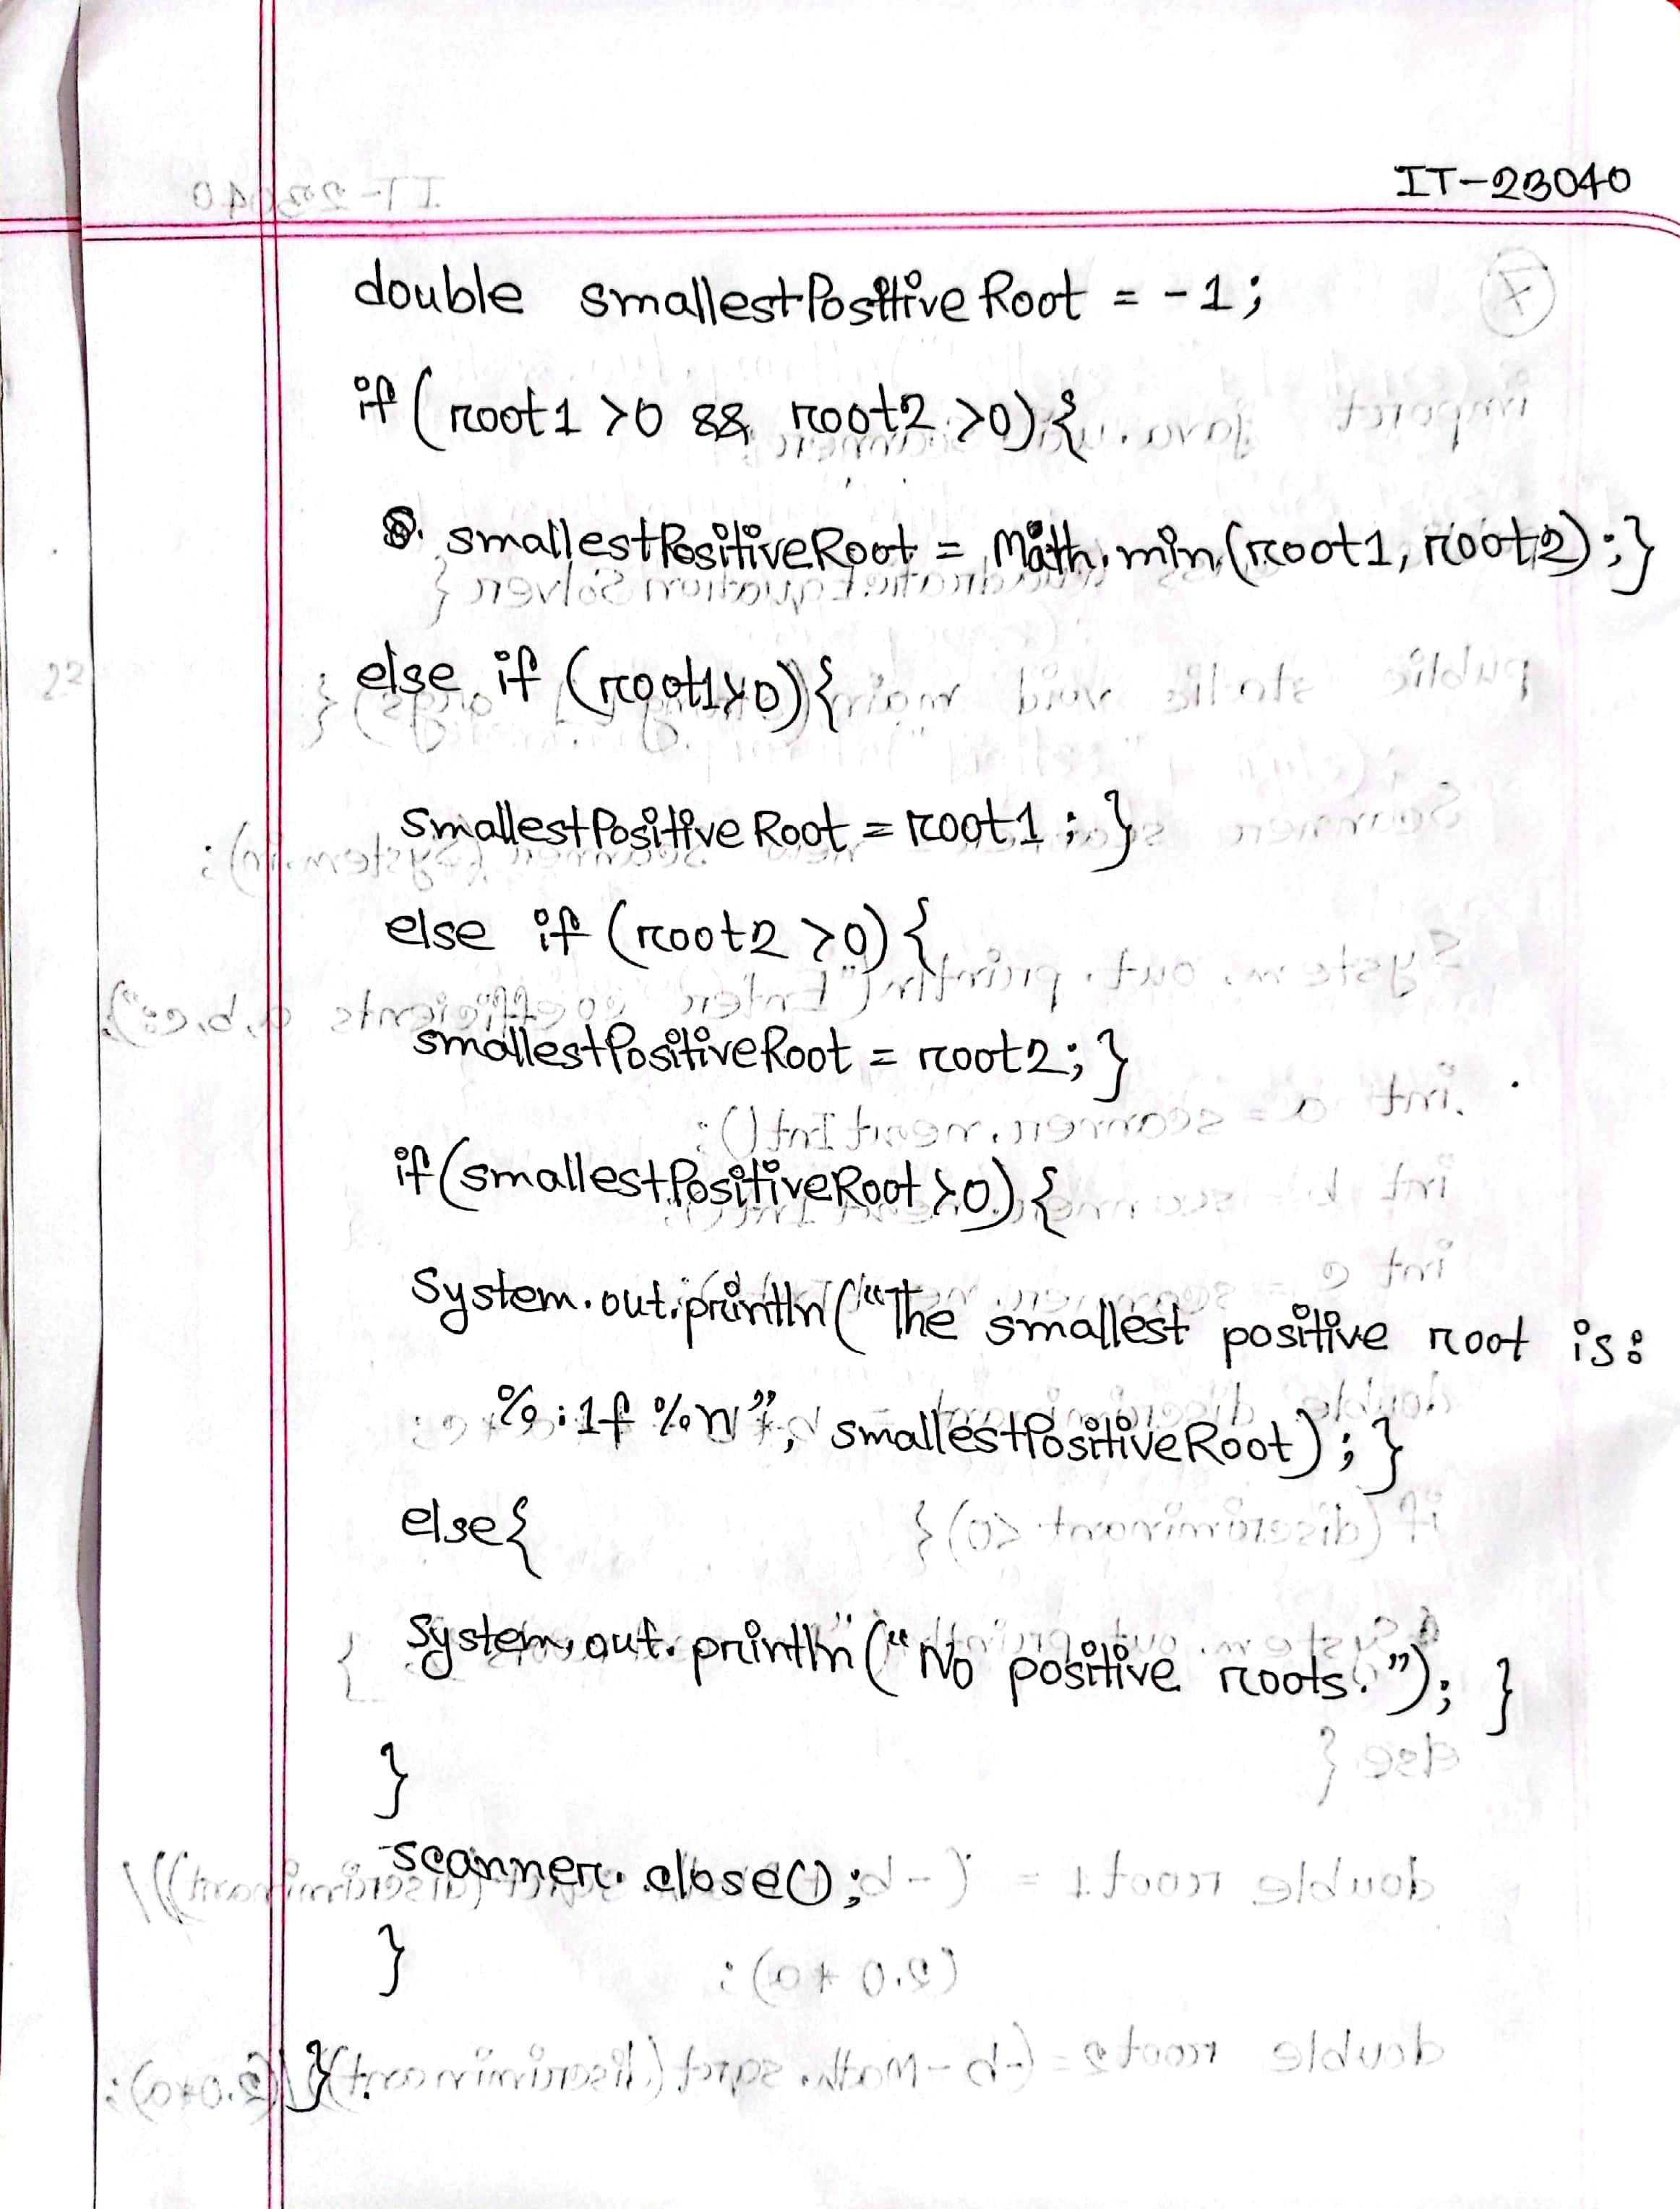 IT-23040
double smallestPositiveRoot = -1;
if (root1 >0 && root2 >0){
smallestPositiveRoot = Math.min(root1, root2);}
else if (root1>0){
smallestPositiveRoot = root1;}
else if (root2 >0){
smallestPositiveRoot = root2;}
if(smallestPositiveRoot >0){
System.out.println("The smallest positive root is:
%.1f %n", smallestPositiveRoot);}
else{
System.out.println("No positive roots."); }
}
scanner.close();
}
}